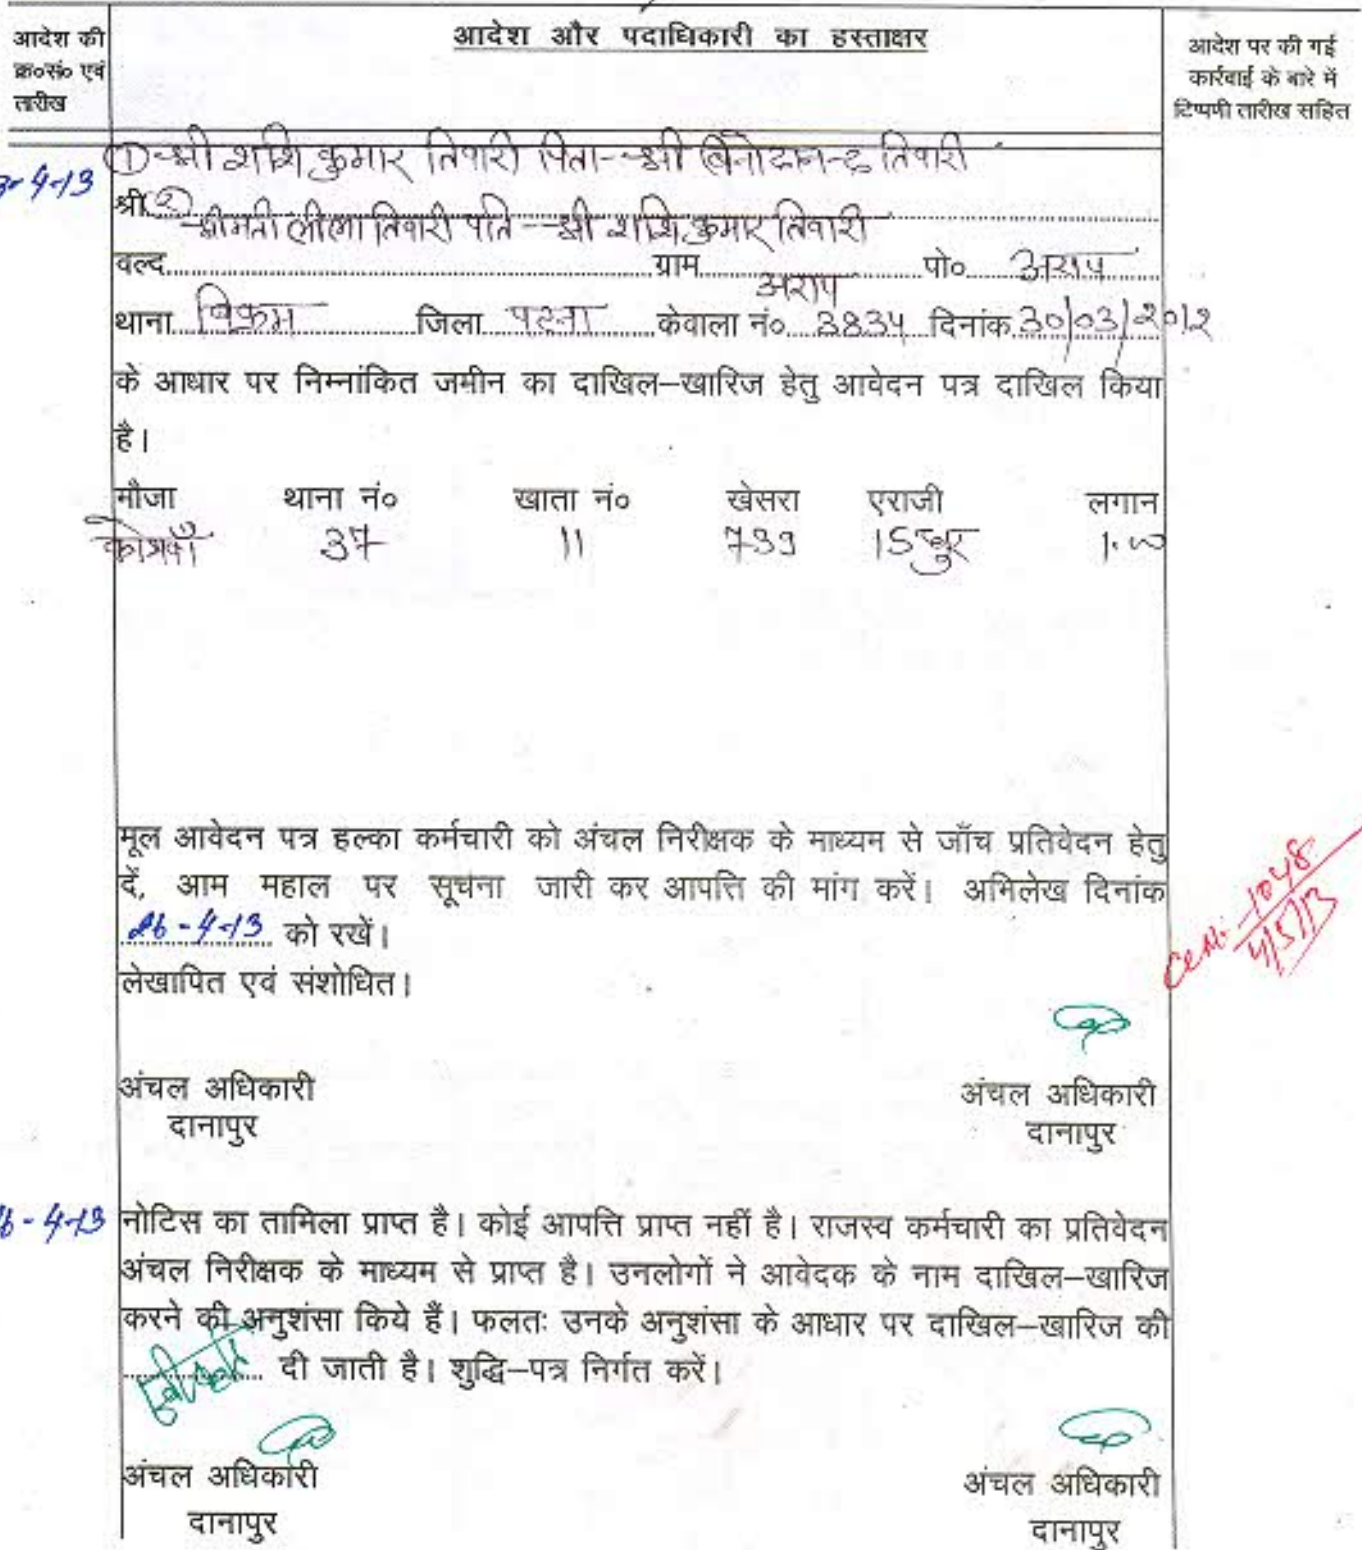 आदेश की
क्र०सं० एवं
तारीख
आदेश और पदाधिकारी का हस्ताक्षर
आदेश पर की गई
कार्रवाई के बारे में
टिप्पणी तारीख सहित
3-4-13
① श्री शशि कुमार तिवारी पिता - श्री बिनोदानन्द तिवारी
श्री ② श्रीमती लीला तिवारी पति - श्री शशि कुमार तिवारी
वल्द ग्राम अराप पो० अराप
थाना विक्रम जिला पटना केवाला नं० 3834 दिनांक 30/03/2012
के आधार पर निम्नांकित जमीन का दाखिल–खारिज हेतु आवेदन पत्र दाखिल किया
है।
मौजा थाना नं० खाता नं० खेसरा एराजी लगान
37 11 739 15 धुर 1.00
मूल आवेदन पत्र हल्का कर्मचारी को अंचल निरीक्षक के माध्यम से जाँच प्रतिवेदन हेतु
दें, आम महाल पर सूचना जारी कर आपत्ति की मांग करें। अभिलेख दिनांक
26-4-13 को रखें।
लेखापित एवं संशोधित।
1048
4/5/13
अंचल अधिकारी अंचल अधिकारी
दानापुर दानापुर
6-4-13 नोटिस का तामिला प्राप्त है। कोई आपत्ति प्राप्त नहीं है। राजस्व कर्मचारी का प्रतिवेदन
अंचल निरीक्षक के माध्यम से प्राप्त है। उनलोगों ने आवेदक के नाम दाखिल–खारिज
करने की अनुशंसा किये हैं। फलतः उनके अनुशंसा के आधार पर दाखिल–खारिज की
स्वीकृति दी जाती है। शुद्धि–पत्र निर्गत करें।
अंचल अधिकारी अंचल अधिकारी
दानापुर दानापुर